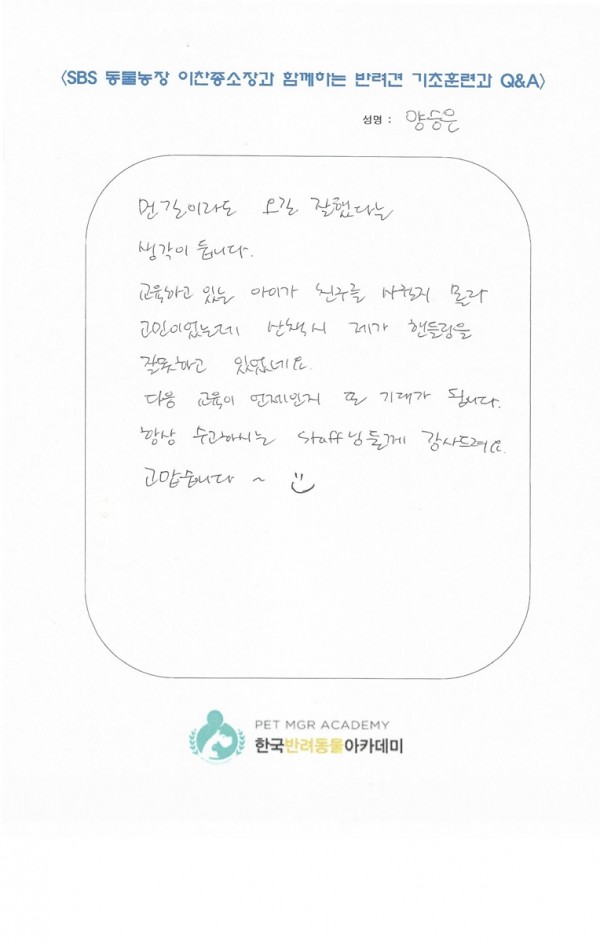 <SBS 동물농장 이찬종소장과 함께하는 반려견 기초훈련과 Q&A>
성명 : 양승은
먼길이라도 오길 잘했다는
생각이 듭니다.
교육하고 있는 아이가 친구를 사귈지 몰라
고민이었는데 산책시 제가 핸들링을
잘못하고 있었네요.
다음 교육이 언제인지 또 기대가 됩니다.
항상 수고하시는 staff님들께 감사드려요.
고맙습니다 ~
PET MGR ACADEMY
한국반려동물아카데미